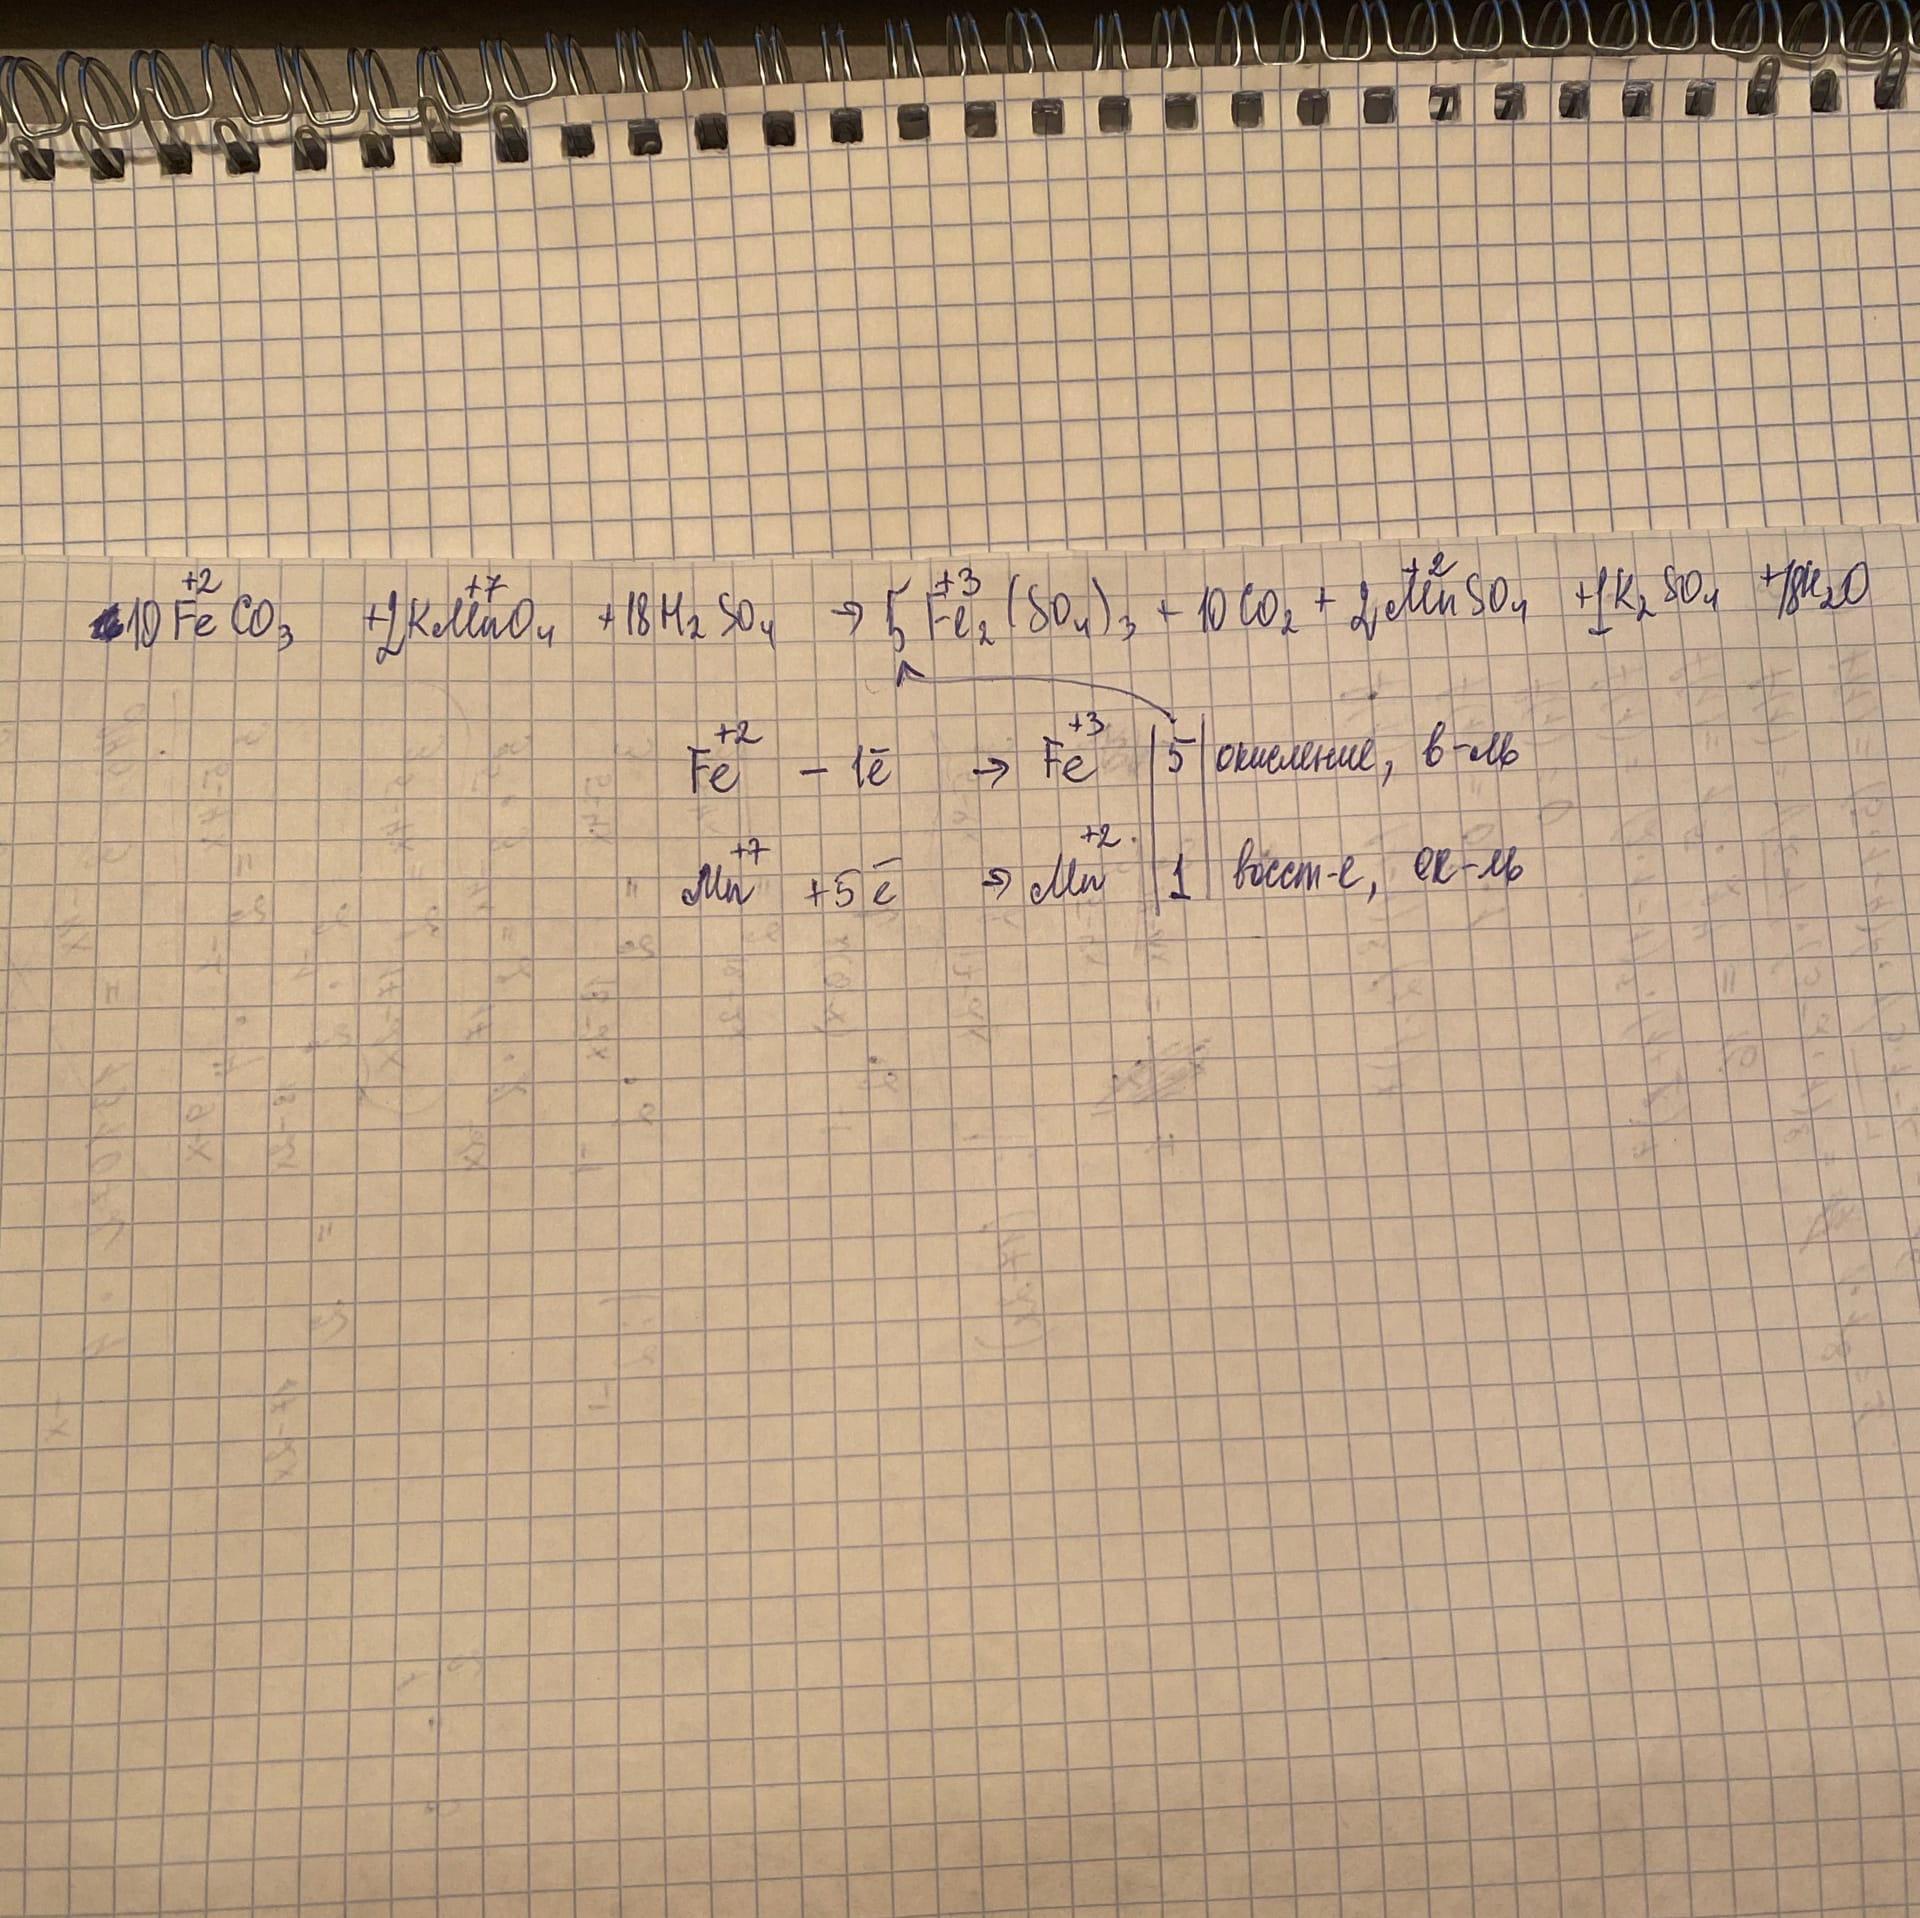 10 Fe⁺²CO₃ + 2KMn⁺⁷O₄ + 18H₂SO₄ → 5 Fe⁺³₂(SO₄)₃ + 10CO₂ + 2Mn⁺²SO₄ + 1K₂SO₄ + 18H₂O
Fe⁺² – 1ē → Fe⁺³ | 5 | окисление, в-ль
Mn⁺⁷ + 5ē → Mn⁺² | 1 | восст-е, ок-ль